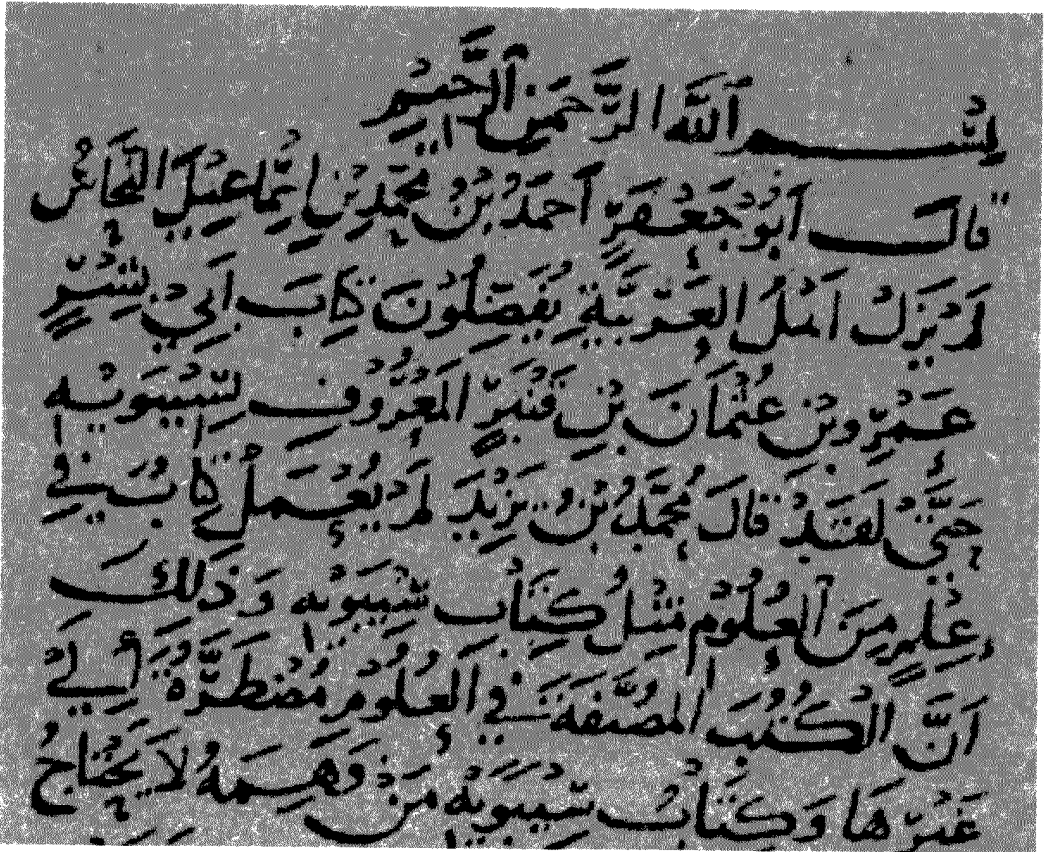 بِسْمِ ٱللَّهِ الرَّحْمَنِ ٱلرَّحِيمِ
قَالَ أَبُو جَعْفَرٍ أَحْمَدُ بْنُ مُحَمَّدِ بْنِ إِسْمَاعِيلَ النَّحَّاسُ
لَمْ يَزَلْ أَهْلُ العَرَبِيَّةِ يُفَضِّلُونَ كِتَابَ أَبِي بِشْرٍ
عَمْرِو بْنِ عُثْمَانَ بْنِ قَنْبَرٍ المَعْرُوفِ بِسِيبَوَيْهِ
حَتَّى لَقَدْ قَالَ مُحَمَّدُ بْنُ يَزِيدَ لَمْ يُعْمَلْ كِتَابٌ فِي
عِلْمٍ مِنَ ٱلعُلُومِ مِثْلُ كِتَابِ سِيبَوَيْهِ وَذَلِكَ
أَنَّ الكُتُبَ المُصَنَّفَةَ فِي العُلُومِ مُضْطَرَّةٌ إِلَى
غَيْرِهَا وَكِتَابُ سِيبَوَيْهِ مَنْ فَهِمَهُ لَا يَحْتَاجُ